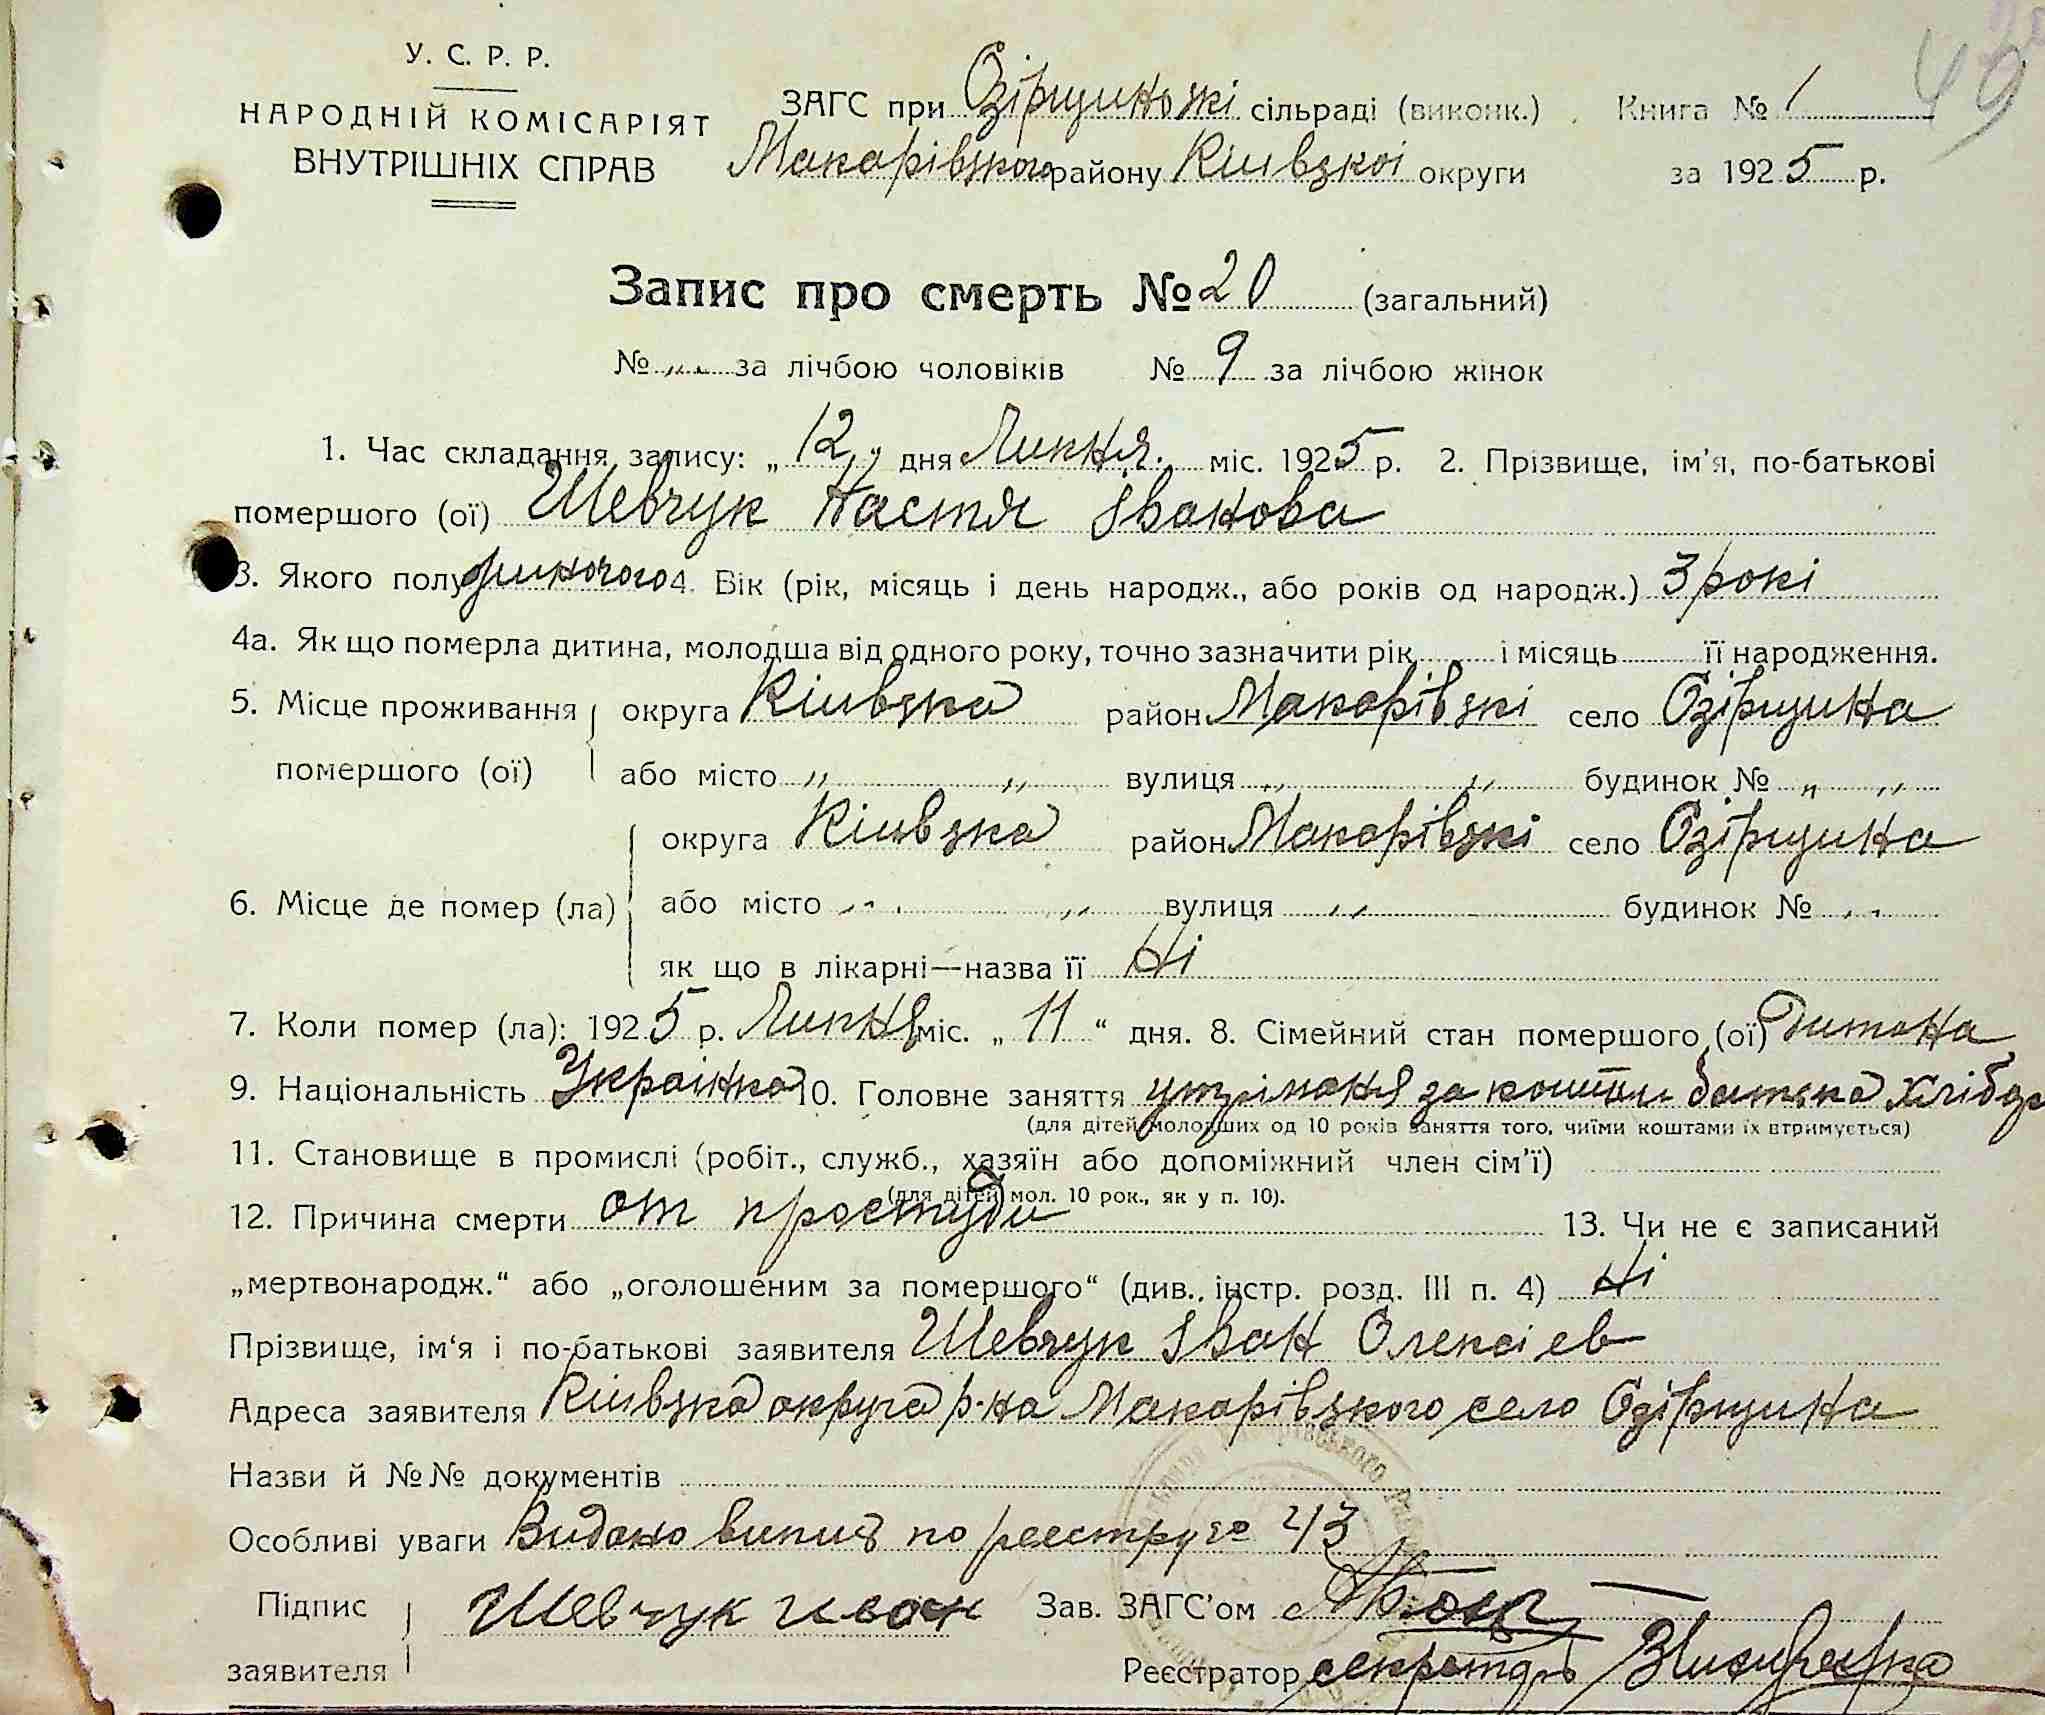 У. С. Р. Р.
НАРОДНІЙ КОМІСАРІЯТ
ВНУТРІШНІХ СПРАВ
ЗАГС при Озірщинскі сільраді (виконк.) Книга № 1
49
Макарівзкого району Кіивзкоі округи за 1925 р.
Запис про смерть № 20 (загальний)
№ „ „ за лічбою чоловіків № 9 за лічбою жінок
1. Час складання запису: „ 12 „ дня Липня. міс. 1925 р. 2. Прізвище, ім'я, по-батькові
помершого (ої) Шевчук Настя Івакова
3. Якого полу жиночого 4. Вік (рік, місяць і день народж., або років од народж.) 3 рокі
4а. Як що померла дитина, молодша від одного року, точно зазначити рік і місяць її народження.
5. Місце проживання округа Кіивзка район Макарівзкі село Озірщина
помершого (ої) або місто „ „ вулиця „ „ будинок № „ „
округа Кіивзка район Макарівзкі село Озірщина
6. Місце де помер (ла) або місто „ „ вулиця „ будинок № „
як що в лікарні—назва її Ні
7. Коли помер (ла): 1925 р. Липня міс. „ 11 “ дня. 8. Сімейний стан помершого (ої) дитина
9. Національність Украінка 10. Головне заняття утріманя за кошти батька хлібор
(для дітей молодших од 10 років заняття того, чиїми коштами їх втримується)
11. Становище в промислі (робіт., служб., хазяїн або допоміжний член сім'ї)
(для дітей мол. 10 рок., як у п. 10).
12. Причина смерти от простуди 13. Чи не є записаний
„мертвонародж.“ або „оголошеним за помершого“ (див. інстр. розд. III п. 4) Ні
Прізвище, ім'я і по-батькові заявителя Шевчук Іван Олексіев
Адреса заявителя Кіивзка округа р-на Макарівзкого село Озірщина
Назви й №№ документів
Особливі уваги Видано випис по реестру за 43
Підпис Шевчук иван Зав. ЗАГС'ом
заявителя Реєстратор секретарь